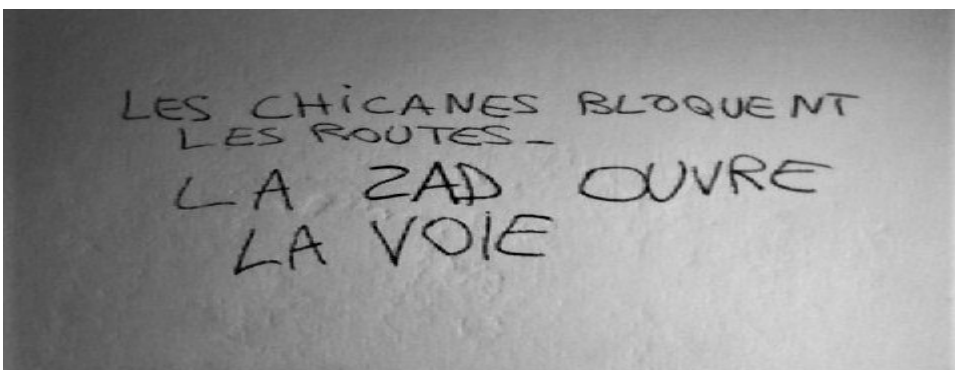 LES CHiCANES BLOQUENT
LES ROUTES_
LA ZAD OUVRE
LA VOiE